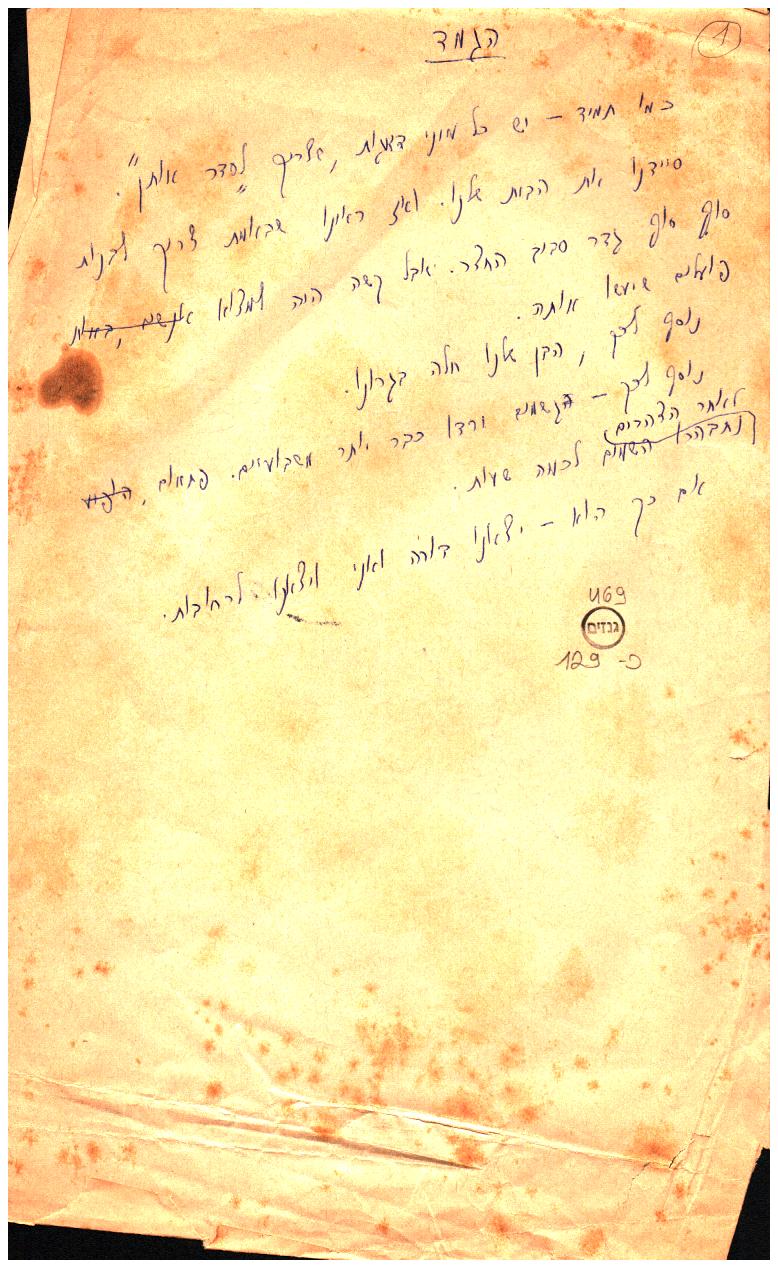 1
הגמד
כמו תמיד – יש כל מיני דאגות, שצריך "לסדר אותן".
סיידנו את הבית שלנו. ואז ראינו שבאמת צריך לבנות
סוף סוף גדר סביב החצר. אבל קשה היה למצוא
פועלים שיעשו אותה.
נוסף לכך, הבן שלנו חלה בגרונו.
נוסף לכך – הגשמים ירדו כבר יותר משבועיים. פתאום,
לאחר הצהרים
נתבהרו השמים לכמה שעות.
אם כך הוא – יצאנו דורה ואני ויצאנו לרחובות.
469
גנזים
129 -כ